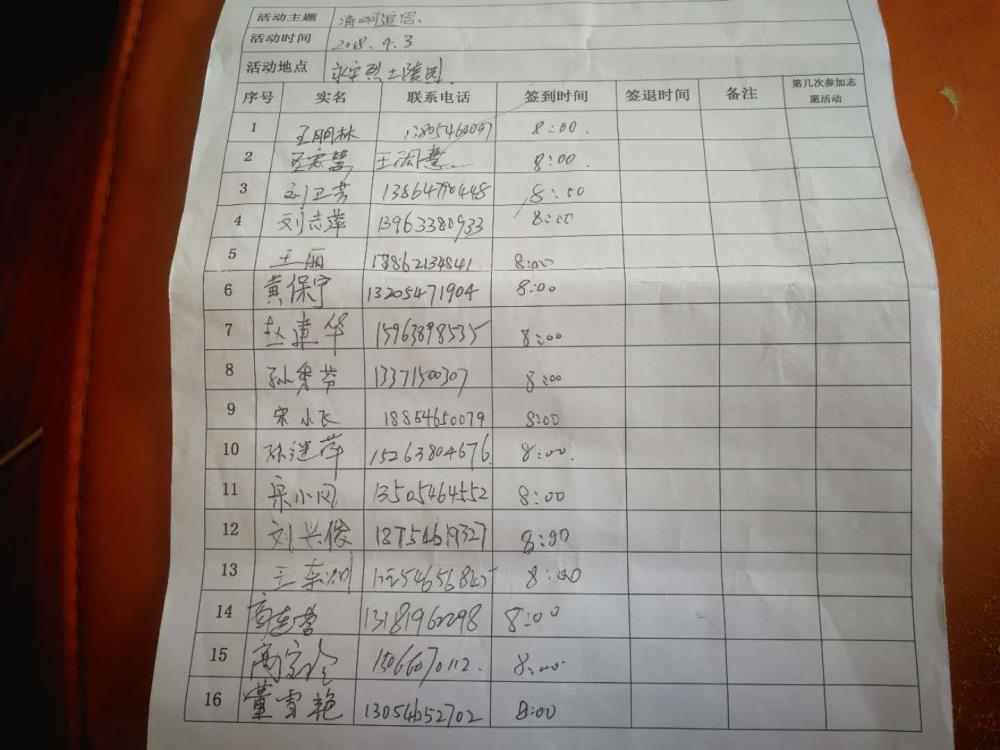 活动主题 清明追思
活动时间 2018.4.3
活动地点 永安烈士陵园
序号 实名 联系电话 签到时间 签退时间 备注 第几次参加志愿活动
1 王明林 13805460097 8:00.
2 8:00.
3 刘卫芳 13864790448 8:00
4 刘志萍 13963380933 8:00
5 王丽 18862134841 8:00
6 黄保宁 13205471904 8:00
7 赵建华 15963898535 8:00
8 孙秀芳 13371500307 8:00
9 宋小飞 18854650079 8:00
10 孙继萍 15263804676. 8:00.
11 宋小风 13505464552 8:00
12 刘兴俊 18754619327 8:00
13 8:00
14 13181960298 8:00
15 8:00
16 董雪艳 13054652702 8:00